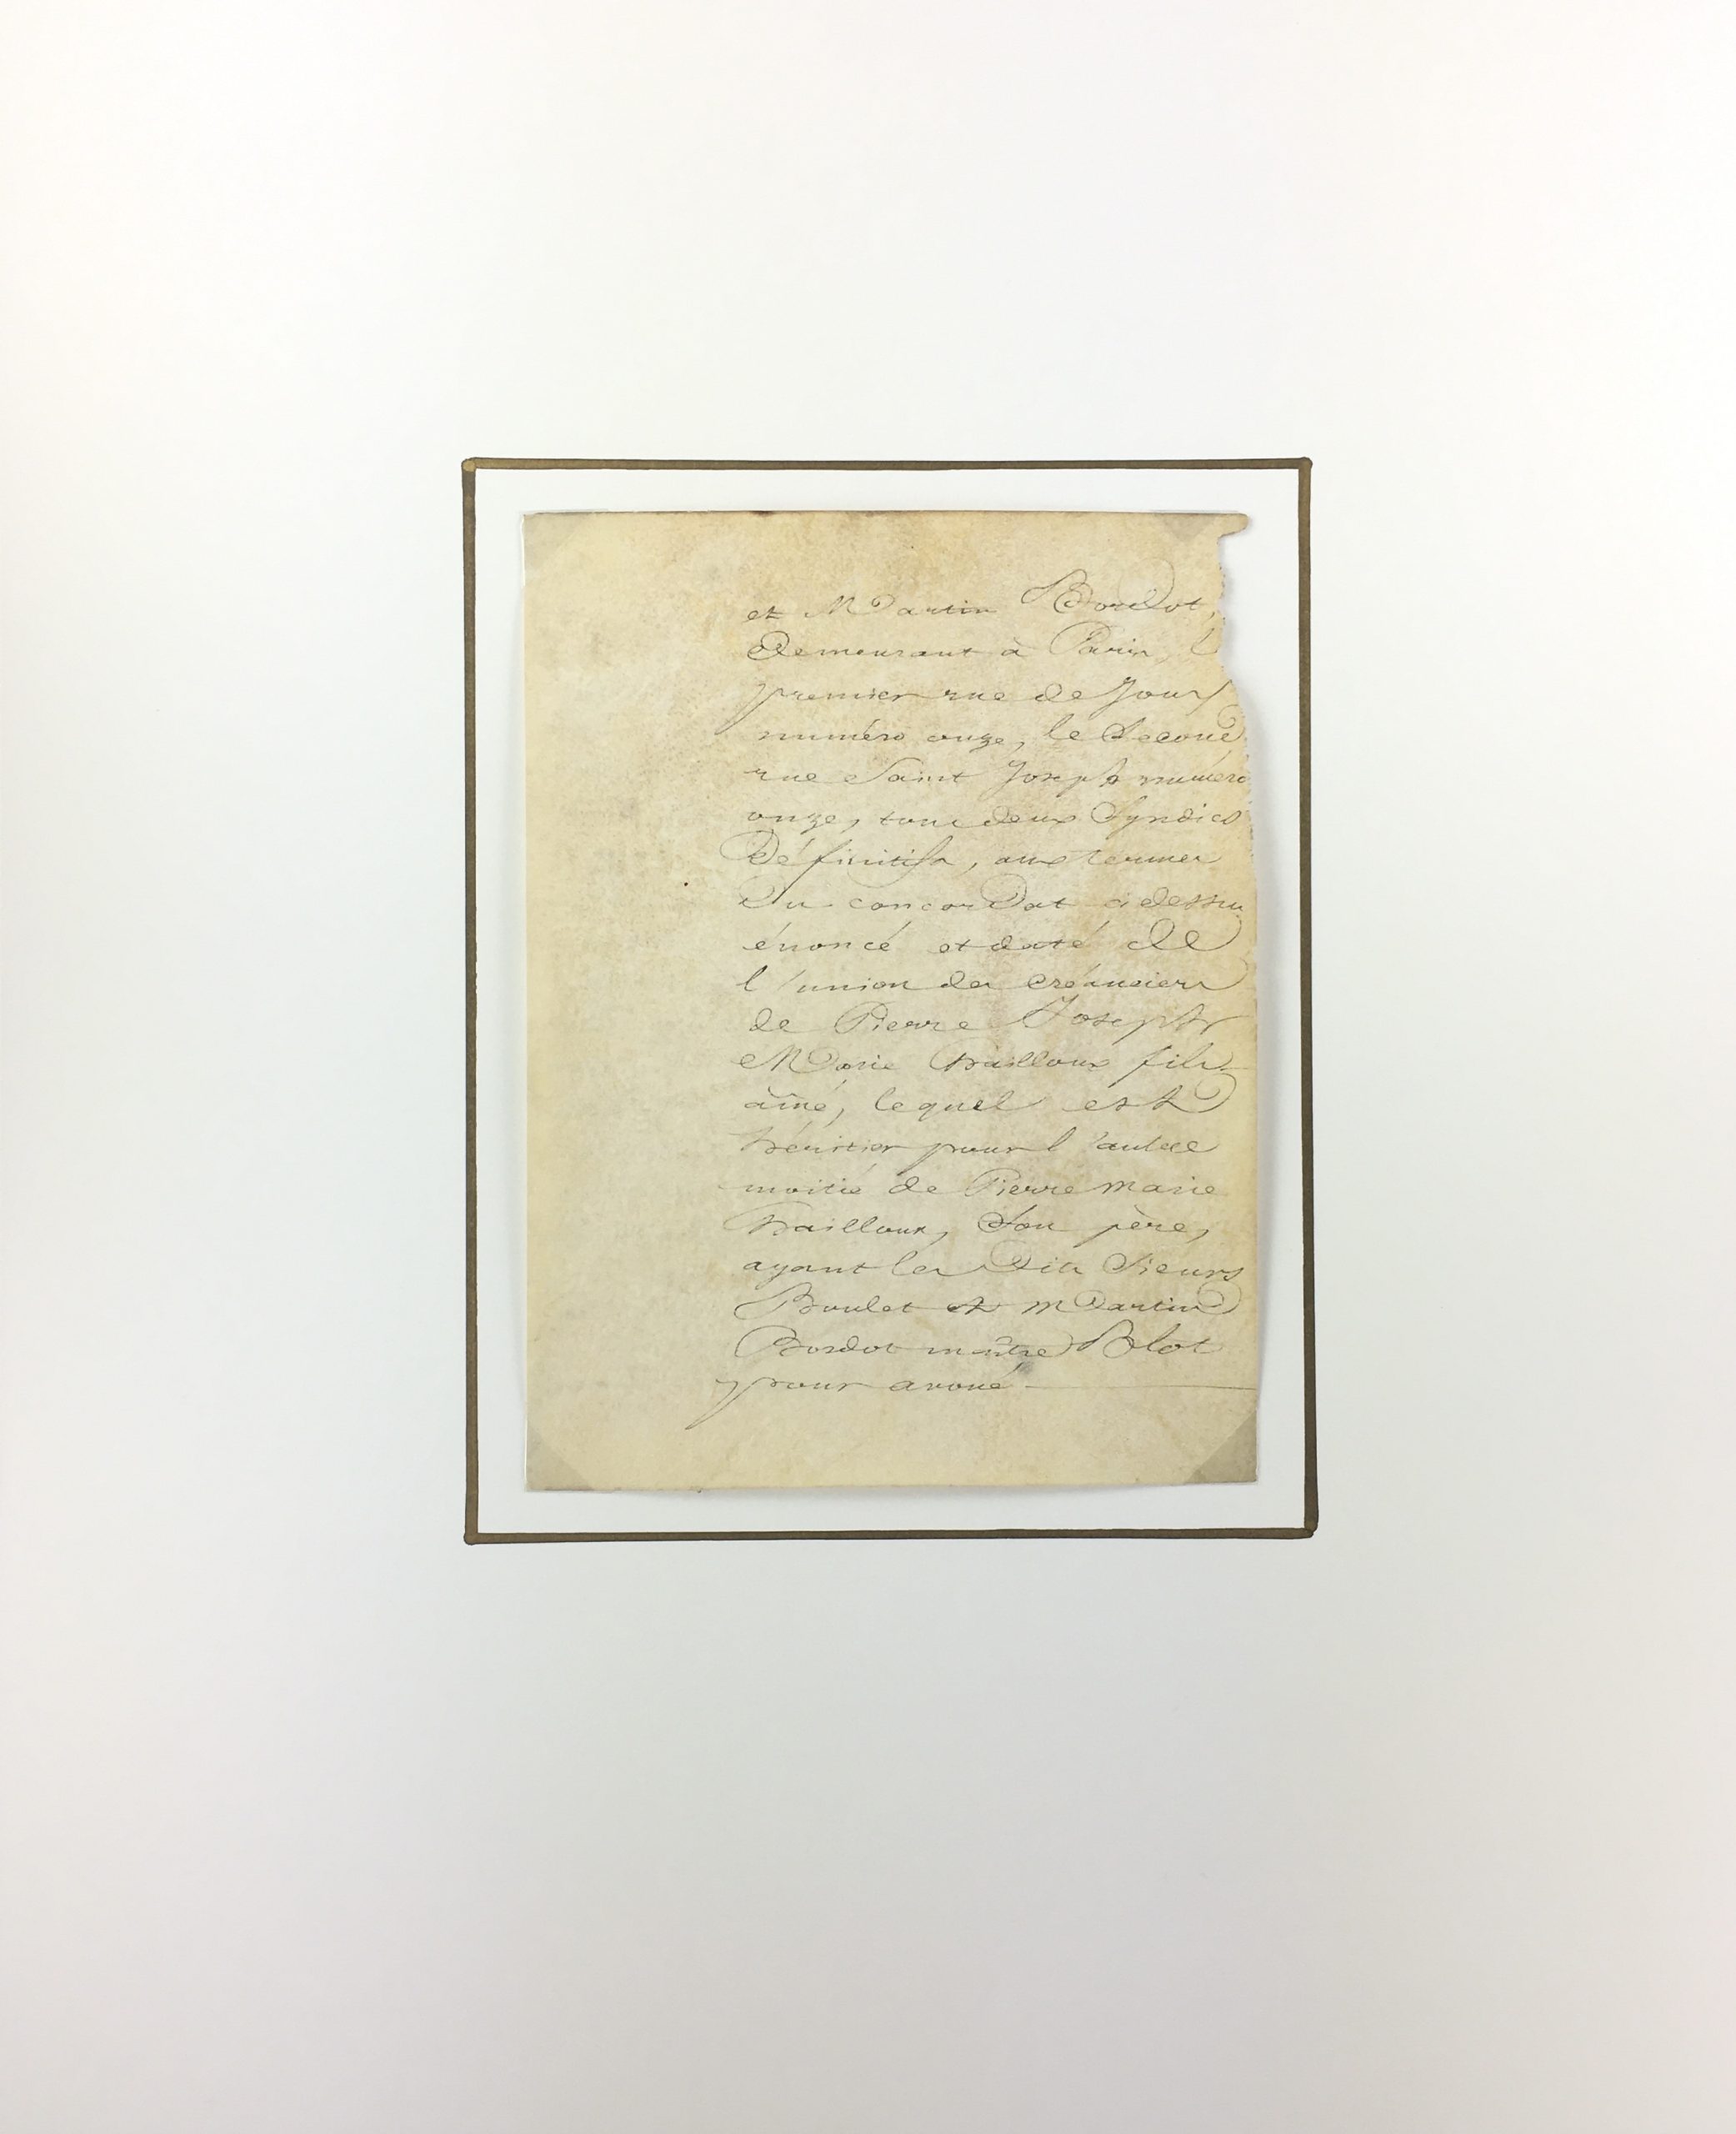 et Martin Bordot,
demeurant à Paris, l
premier rue de Jour
numéro onze, le Second
rue Saint Joseph numéro
onze, tous deux Syndics
Définitifs, aux termes
Du concordat ci dessus
énoncé et daté de
l'union des créanciers
de Pierre Joseph
Marie hailloux fils
aîné, lequel est
héritier pour l'autre
moitié de Pierre Marie
hailloux, Son père,
ayant les Dits Sieurs
Boulet et Martin
Bordot maître Blot
pour avoué